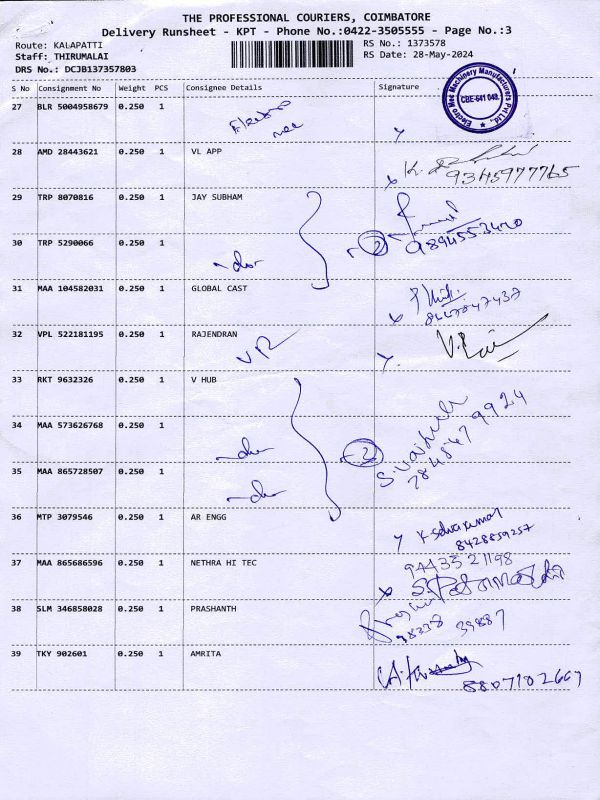 THE PROFESSIONAL COURIERS, COIMBATORE
Delivery Runsheet - KPT - Phone No.:0422-3505555 - Page No.:3
Route: KALAPATTI
RS No.: 1373578
Staff: THIRUMALAI
RS Date: 28-May-2024
DRS No.: DCJB137357803
S No Consignment No Weight PCS Consignee Details Signature
Electro Mec Machinery Manufacturers Pvt Ltd.
CBE-641 048.
27 BLR 5004958679 0.250 1 Electro
mec
28 AMD 28443621 0.250 1 VL APP
9345977765
29 TRP 8070816 0.250 1 JAY SUBHAM
30 TRP 5290066 0.250 1 -do- 2
9894553420
31 MAA 104582031 0.250 1 GLOBAL CAST
8667847437
32 VPL 522181195 0.250 1 RAJENDRAN
VR
33 RKT 9632326 0.250 1 V HUB
34 MAA 573626768 0.250 1 -do- 2
784847 9924
35 MAA 865728507 0.250 1 -do-
36 MTP 3079546 0.250 1 AR ENGG K-Selvakumar
8428859257
37 MAA 865686596 0.250 1 NETHRA HI TEC 9443521198
38 SLM 346858028 0.250 1 PRASHANTH
98238 39887
39 TKY 902601 0.250 1 AMRITA
8807102667